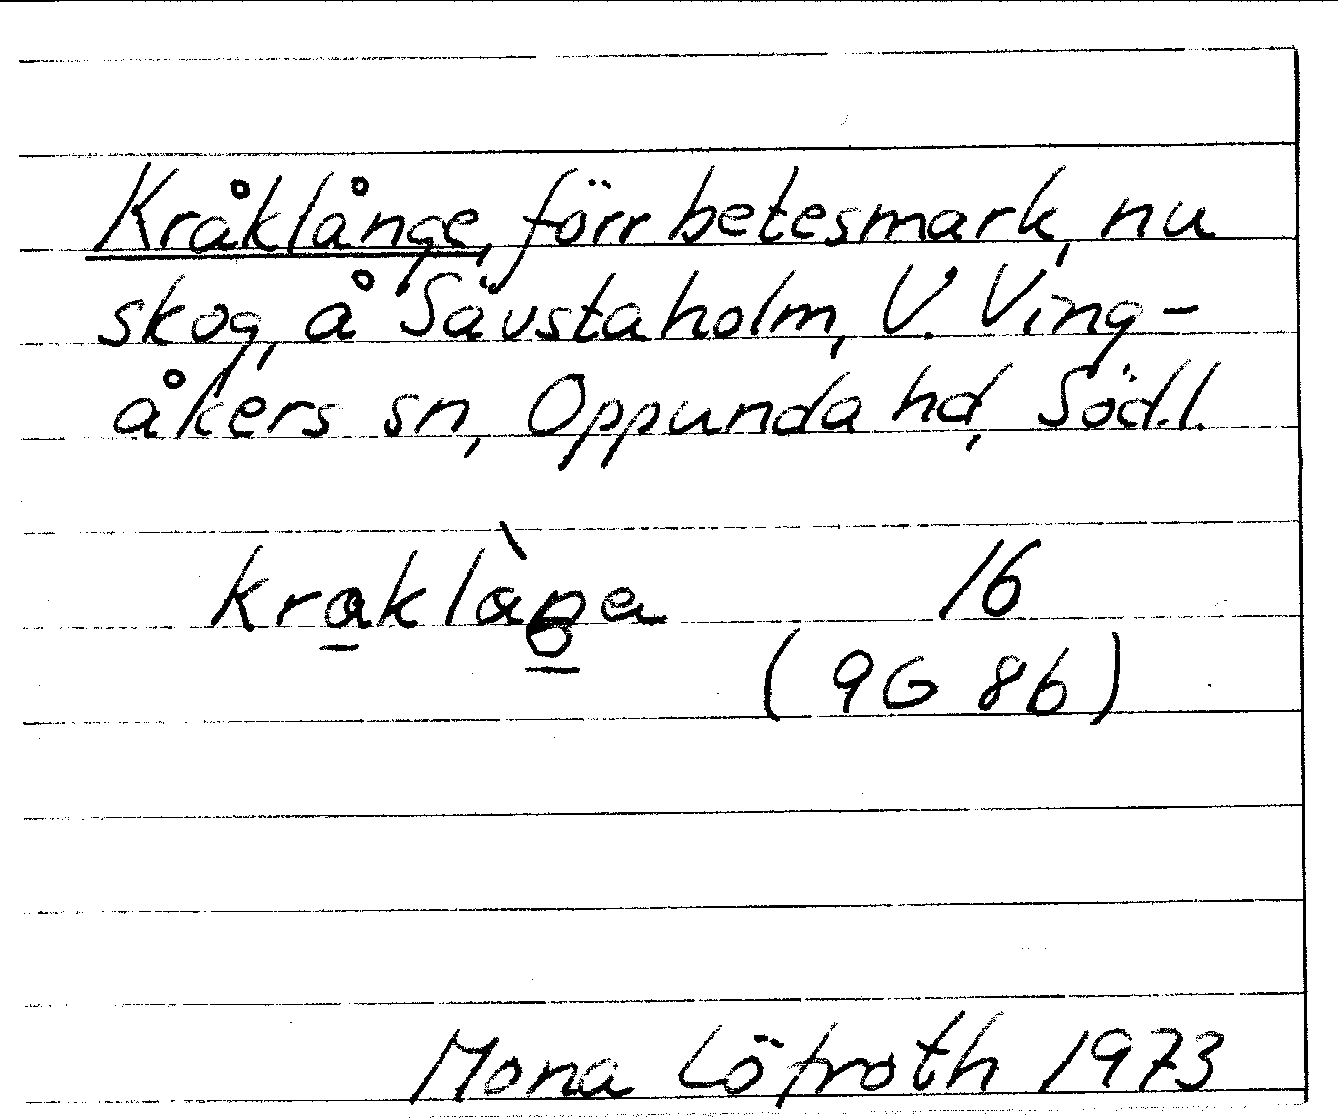 Kråklånge, förr betesmark, nu
skog, å Sävstaholm, V. Ving-
åkers sn, Oppunda hd, Söd.l.
16
(9G 8b)
Mona Löfroth 1973